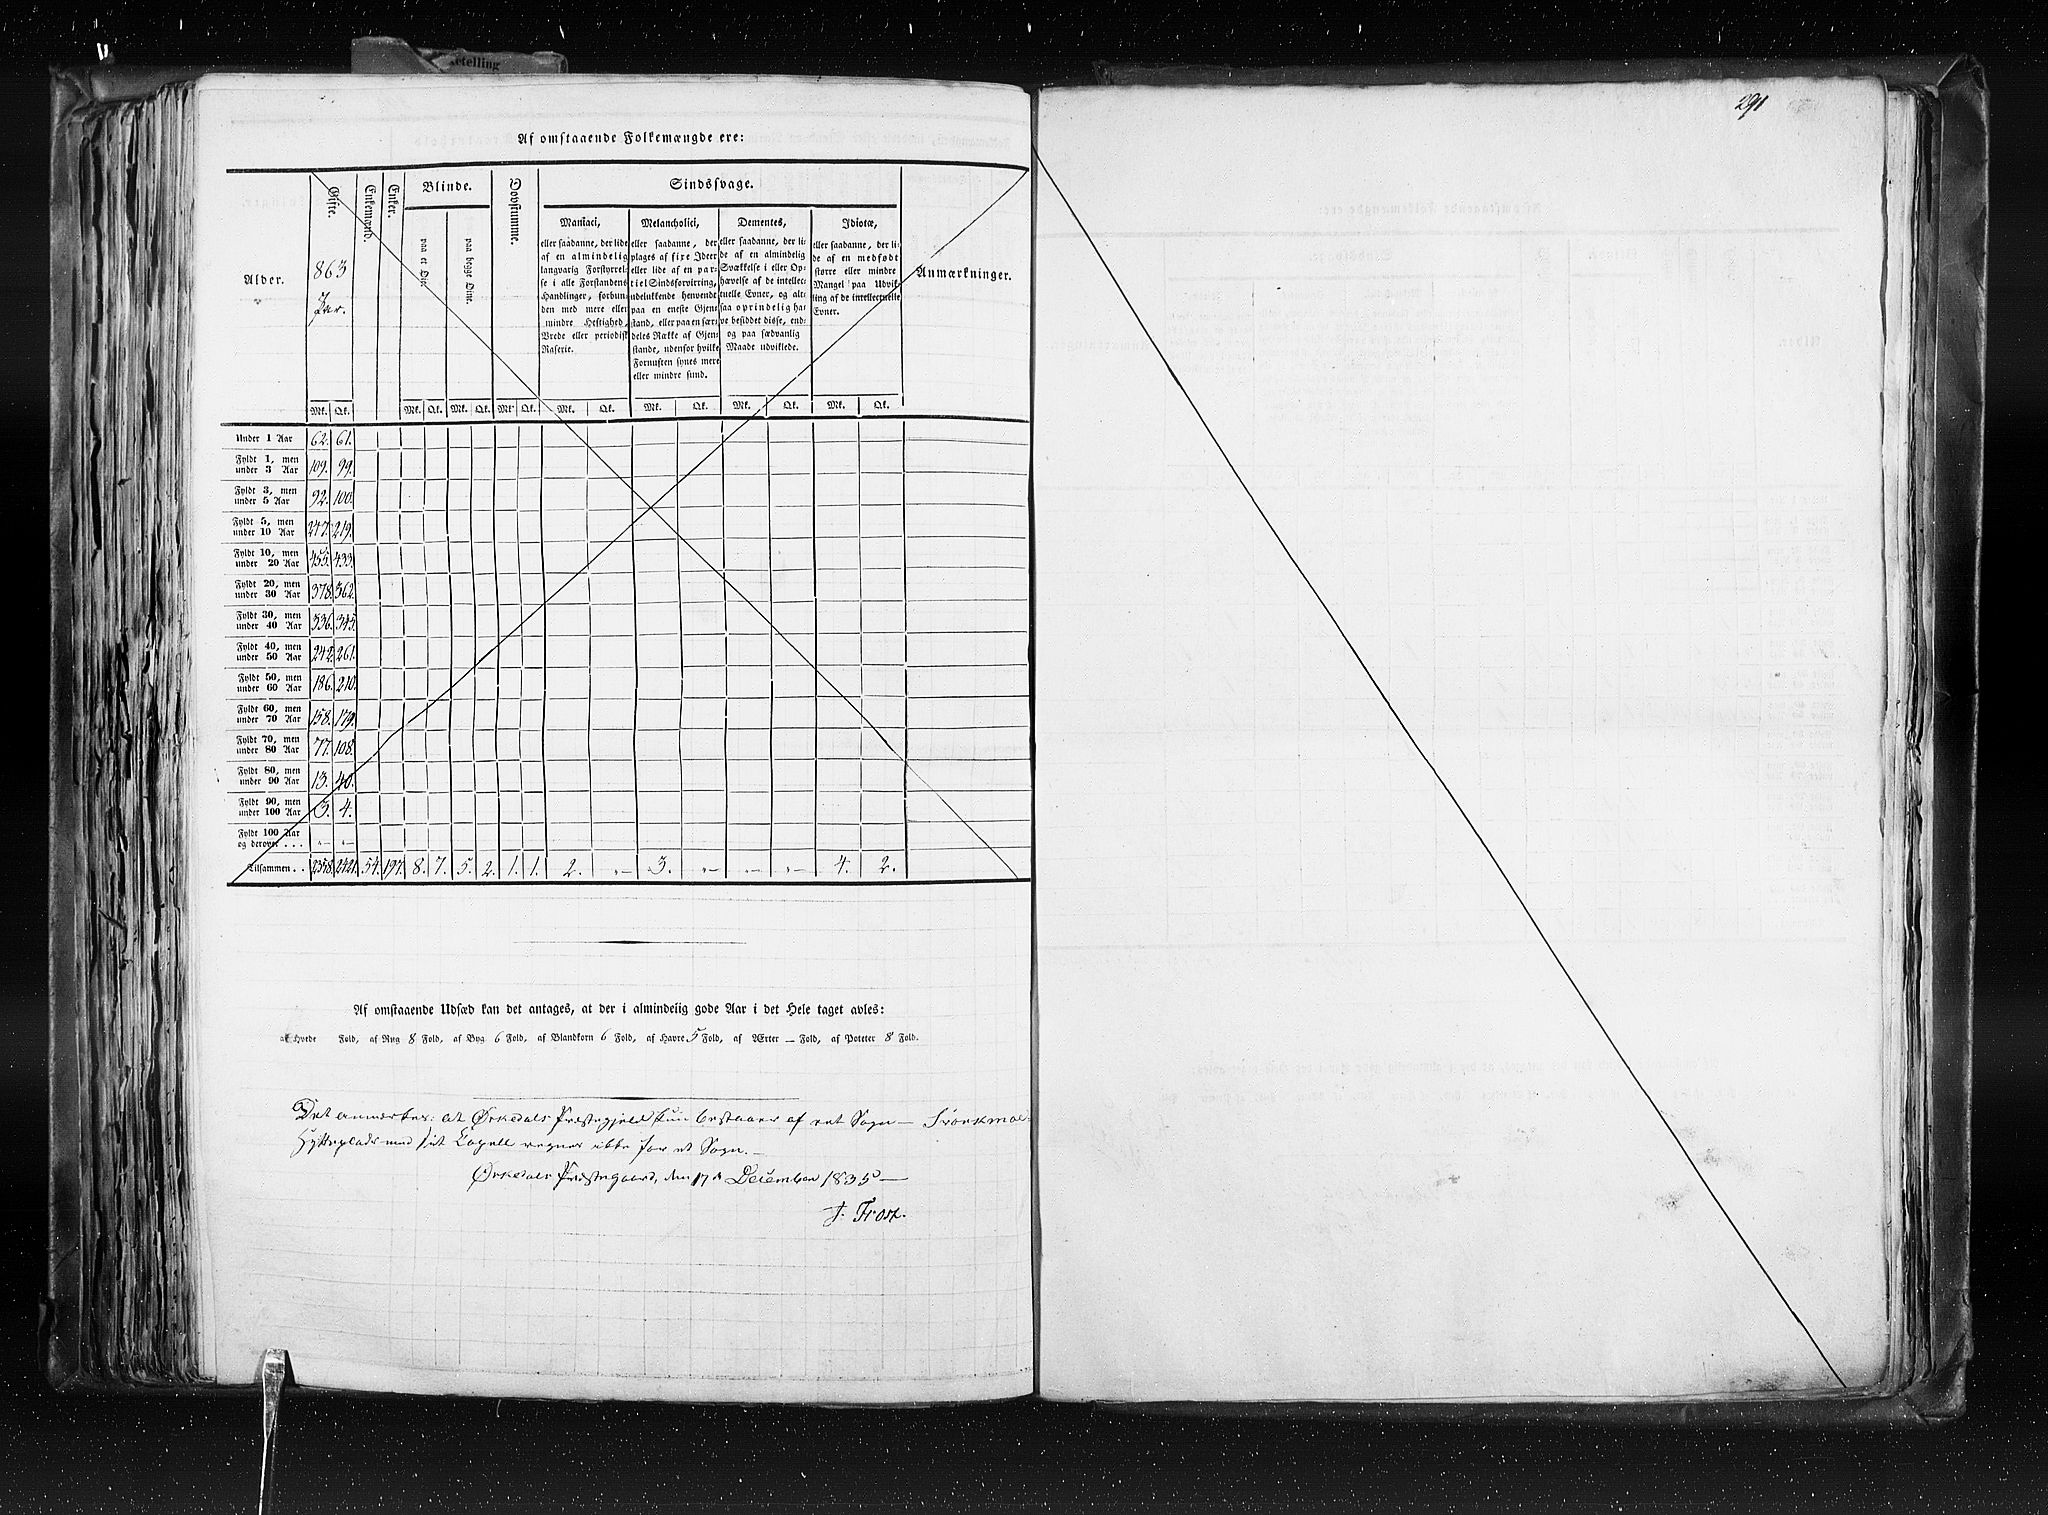 291
Af omstaaende Folkemængde ere:
Alder. Gifte. 863 Par. Enkemænd. Enker. Blinde. paa et Øie. paa begge Øine. Døvstumme. Sindssvage. Anmærkninger.
Maniaci,
eller saadanne, der lide
af en almindelig
langvarig Forstyrrel-
se i alle Forstandens
Handlinger, forbun-
den med mere eller
mindre Heftighed,
Vrede eller periodisk
Raserie.
Melancholici,
eller saadanne, der
plages af fixe Ideer
eller lide af en par-
tiel Sindsforvirring,
udelukkende henvendt
paa en eneste Gjen-
stand, eller paa en sær-
deles Række af Gjen-
stande, udenfor hvilke
Fornuften synes mere
eller mindre sund.
Dementes,
eller saadanne, der li-
de af en almindelig
Svækkelse i eller Op-
hævelse af de intellec-
tuelle Evner, og alt-
saa oprindelig ha-
ve besiddet disse, end-
og paa sædvanlig
Maade udviklede.
Idiotæ,
eller saadanne, der li-
de af en medfødt
større eller mindre
Mangel paa Udvik-
ling af de intellectuelle
Evner.
Mk. Qk. Mk. Qk. Mk. Qk. Mk. Qk. Mk. Qk. Mk. Qk. Mk. Qk. Mk. Qk.
Under 1 Aar 62. 61.
Fyldt 1, men
under 3 Aar 109. 99.
Fyldt 3, men
under 5 Aar 92. 100.
Fyldt 5, men
under 10 Aar 247. 219.
Fyldt 10, men
under 20 Aar 455. 433.
Fyldt 20, men
under 30 Aar 378. 362.
Fyldt 30, men
under 40 Aar 336. 345.
Fyldt 40, men
under 50 Aar 242. 261.
Fyldt 50, men
under 60 Aar 186. 210.
Fyldt 60, men
under 70 Aar 158. 179.
Fyldt 70, men
under 80 Aar 77. 108.
Fyldt 80, men
under 90 Aar 13. 40.
Fyldt 90, men
under 100 Aar 3. 4.
Fyldt 100 Aar
og derover . . . „— „—
Tilsammen . . 2358. 2421. 54. 197. 8. 7. 5. 2. 1. 1. 2. „— 3. „— „— „— 4. 2.
Af omstaaende Udsæd kan det antages, at der i almindelig gode Aar i det Hele taget avles:
af Hvede Fold, af Rug 8 Fold, af Byg 6 Fold, af Blandkorn 6 Fold, af Havre 5 Fold, af Ærter — Fold, af Poteter 8 Fold.
Det anmærkes: at Ørkedals Præstegjeld kun bestaaer af eet Sogn —
Hytteplads med sit Capell regnes ikke for et Sogn. —
Ørkedals Præstegaard, den 17de December 1835 —
J. Frost.